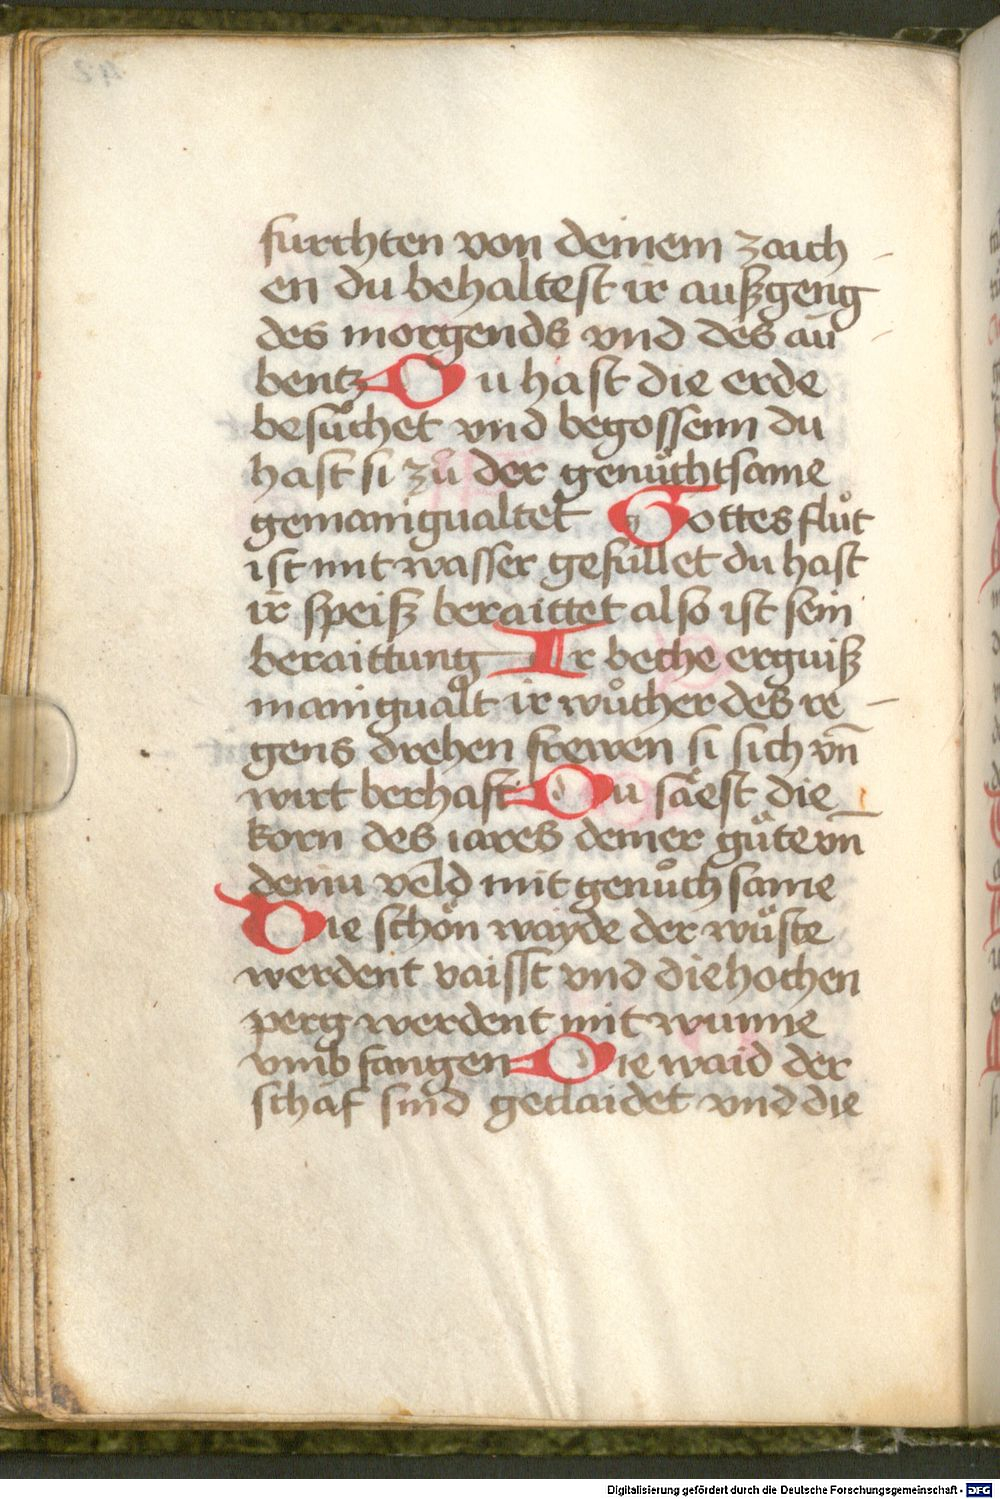 furchten von deinem zaich
en du behaltest ir außgeng
des morgends vnd des au
bentz Du hast die erde
besůchet vnd begossenn du
hast si zů der genůchtsame
gemanigualtet Gottes flůt
ist mit wasser gefüllet du hast
ir speiß beraittet also ist sein
beraittung Ir beche erguiß
manigualt ir wůcher des re
gens drehen frewen si sich vn̄
wirt berhaft Du säest die
korn des iares deiner gůte vn̄
deiniu veld mit genůch same
Die schön wayde der wüste
werdent vaisst vnd die hochen
perg werdent mit wunne
vmb fangen Die waid der
schäf sind geclaidet vnd die
Digitalisierung gefördert durch die Deutsche Forschungsgemeinschaft - DFG